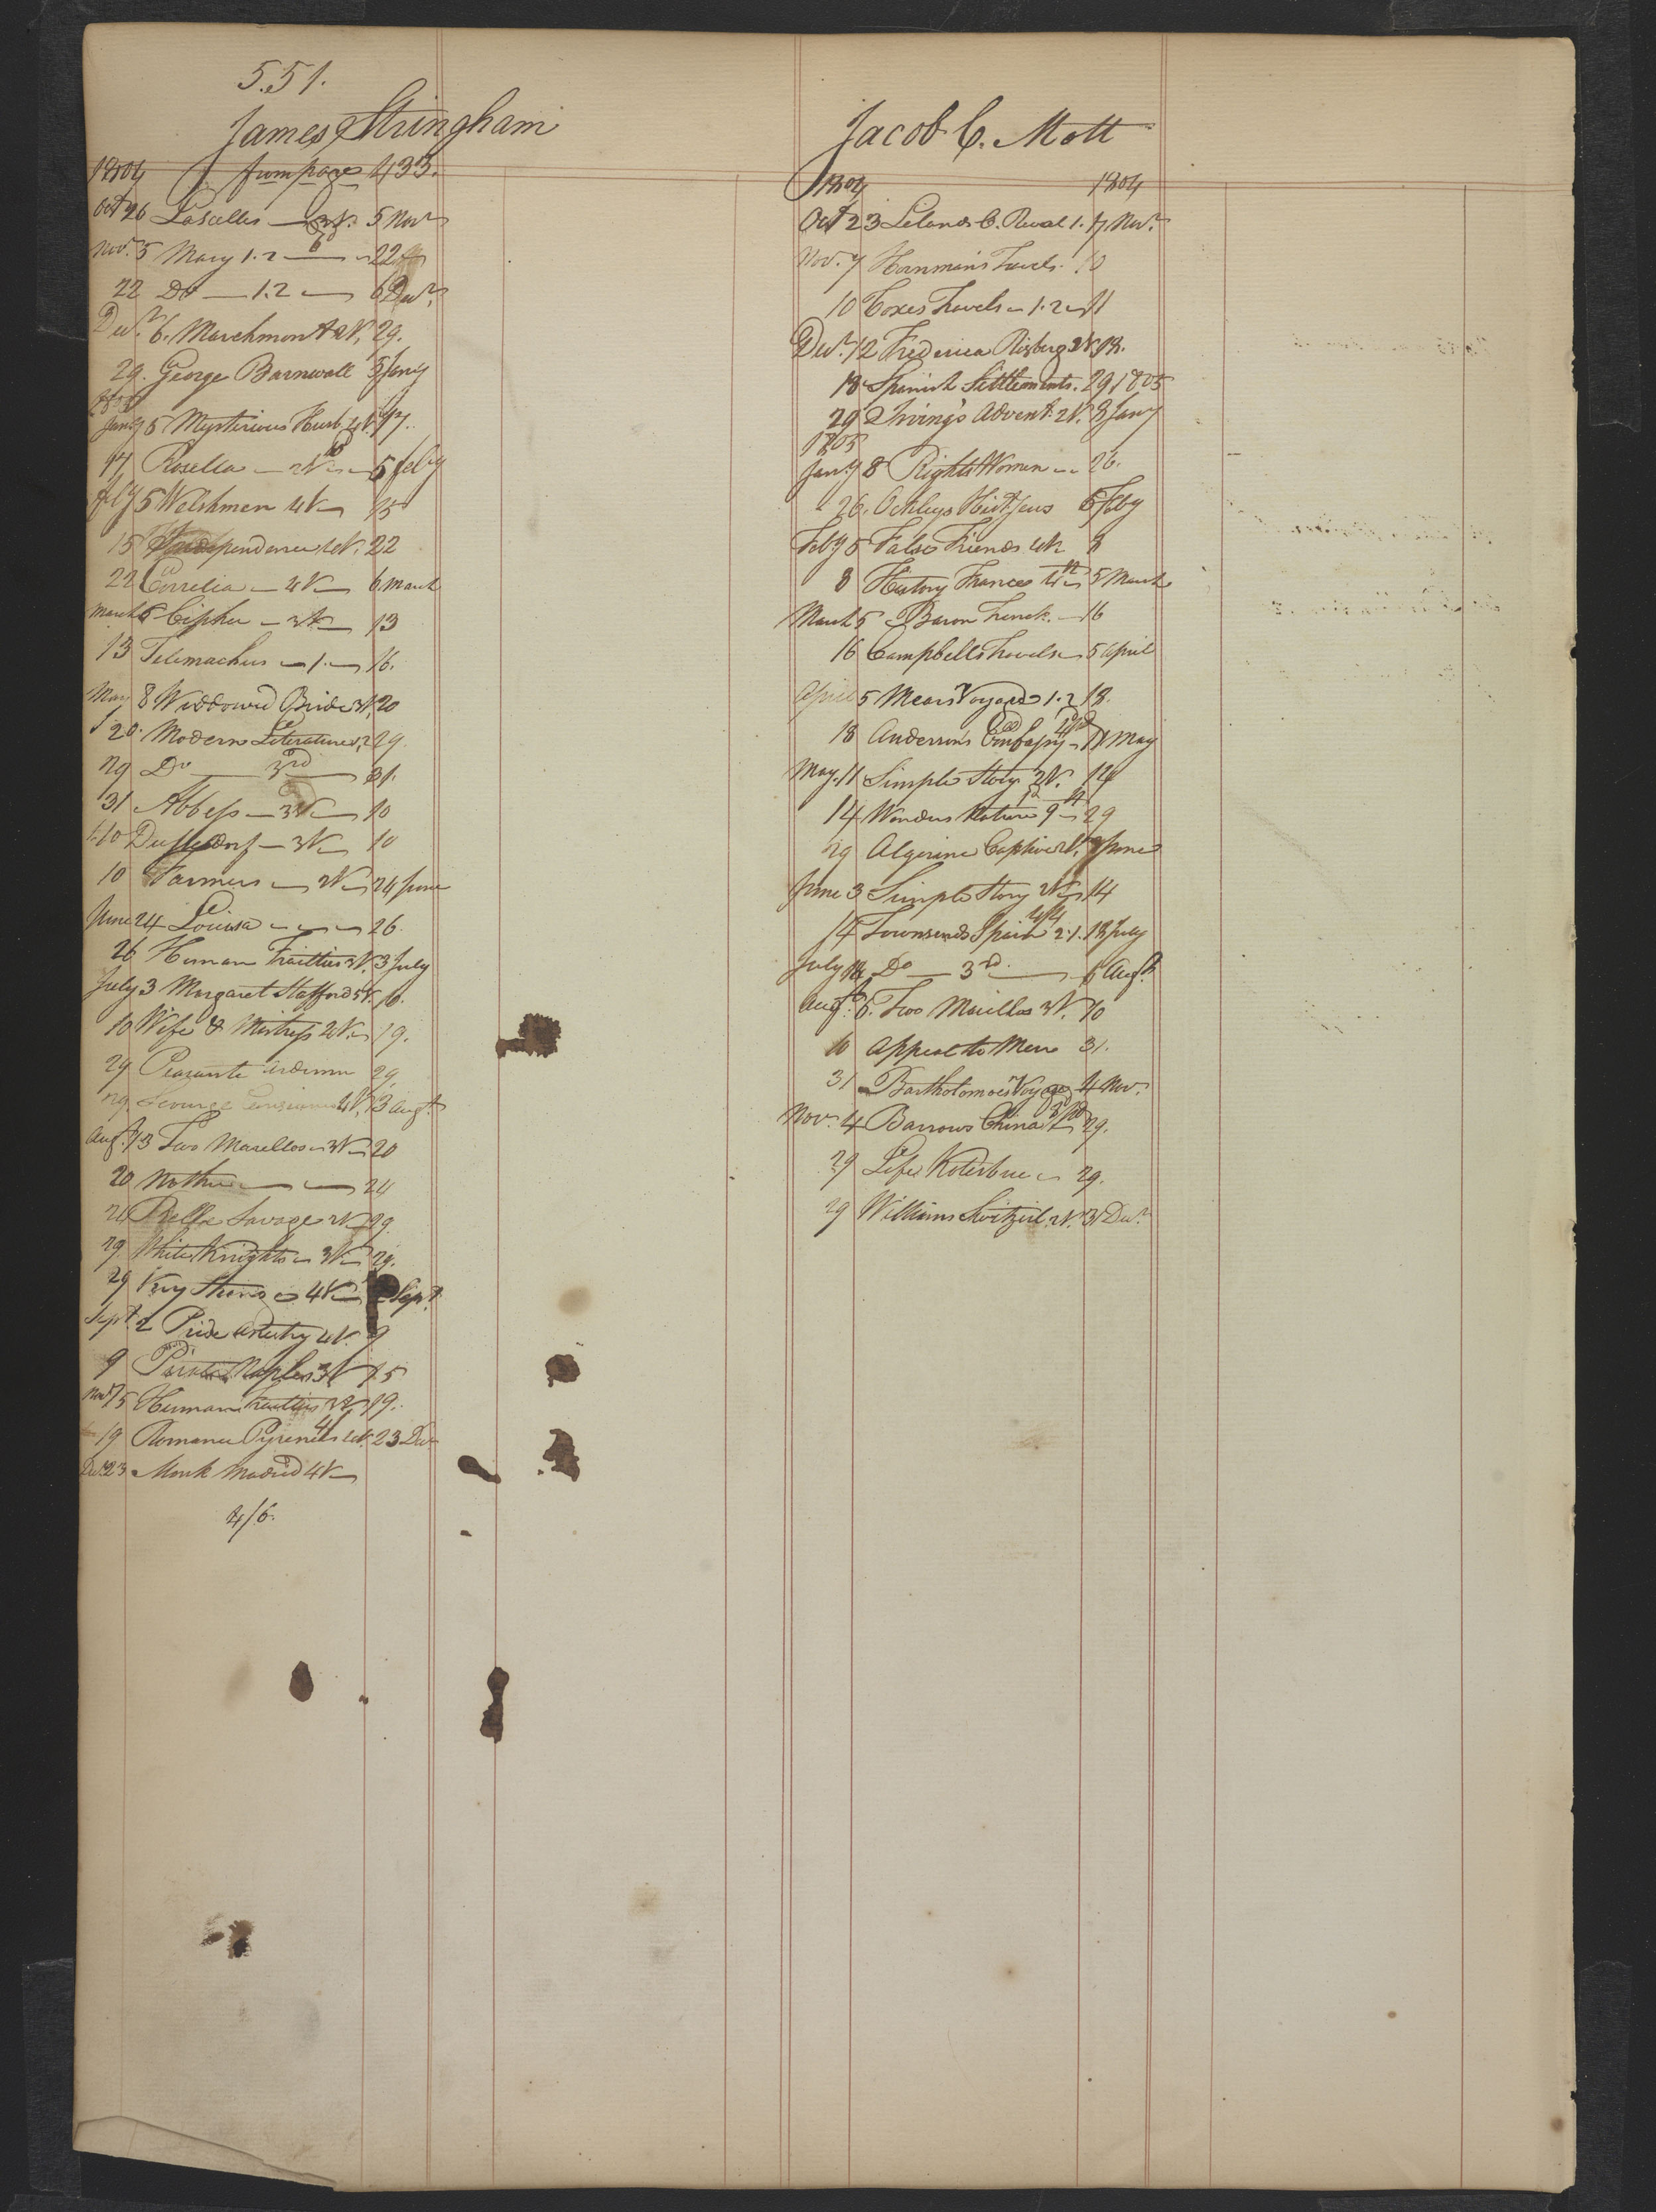 551.
James Stringham
1804 from page 433.
Oct 26 Lascelles — 3V. 5 Nov
Nov. 5 Mary 1.2 — 22
22 Do — 1.2 — 6 Decr.
Decr. 6. Marchmont 2V. 29.
29. George Barnwall 5 Jany
1805
Jany 5 Mysterious Husb. 4V. 17.
17 Rosella — 2V — 5 feby
feby 5 Welshmen 4V — 15
15 Independence 4V. 22
22 Correlia — 4V — 6 March
March 6 Cipher — 3V — 13
13 Telemachus — 1. — 16.
May 8 Widdowed Bride 3V. 20
20. Modern Literature 1.2 29
29 Do — 3rd — 31.
31 Abbess — 3V — 10
10 Dusseldorf — 3V — 10
10 Farmers — 2V — 24 June
June 24 Louisa — 26.
26 Human Frailties 3V. 3 July
July 3 Margaret Stafford 5V. 10.
10 Wife & Mistress 2V. 19.
29 Peasant Ardenne 29
29. Scourge Conscience 4V. 13 Augt.
Augt. 13 Two Marellos 3V 20
20 Nothing — 24
24 Belle Savage 2V 29
29 White Knights 3V — 29.
29 Very Strange 4V — 2 Sept.
Sept. 2 Pride Ancestry 4V. 9
9 Pirate Naples 3V 15
Novr. 15 Human Frailties 3V 19.
19 Romance Pyrenees 4V. 23 Decr
Decr. 23 Monk Madrid 4V —
4/6.
Jacob C. Mott
1804 1804
Oct 23 Lelands C. Reveal 1. 7 Nov.
Nov. 7 Hornmans Travels. 10
10 Coxes Travels — 1.2 — 11
Decr. 12 Frederica Risberg 2V 18.
18 Spanish Settlements. 29 1805
29 Irving's Advent. 2V. 8 Jany
1805
Jany 8 Rights Women — 26.
26. Ockleys Hist 5 Feby
Feby 5 False Friends 2V 8
8 History France 4 — 5 March
March 5 Baron Trenck. — 16
16 Campbells Travels — 5 April
April 5 Mears Voyages 1.2 18.
18 Anderson's Embassy — 11 May
May. 11 Simple Story 2V. 14
14 Wonders Nature 9 — 29
29 Algerine Captive 2V. 3 June
June 3 Simple Story 2V 14
14 Townsends Spain 2.1. 18 July
July 18 Do — 3rd. — 6 Augt.
Augt. 6. Two Marellos 3V. 10
10 Appeal to Men 31.
31 Bartholomoes Voyage 4 Nov.
Nov. 4 Barrows China 29.
29 Life Kotzebue — 29.
29 Williams Switzerl. 2V. 31 Decr.